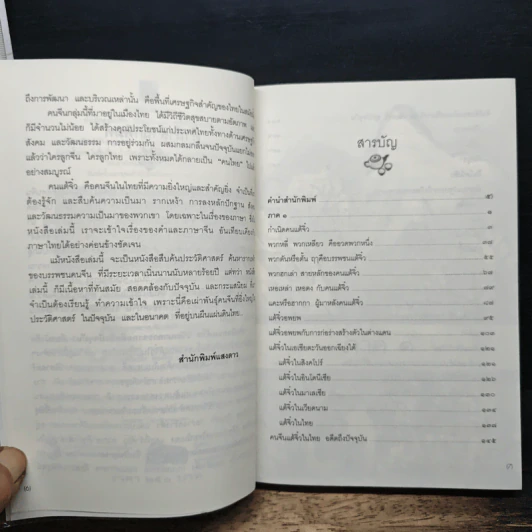 ถึงการพัฒนา และบริเวณเหล่านั้น คือพื้นที่เศรษฐกิจสำคัญของไทยในสมัย
คนจีนกลุ่มนี้ที่มาอยู่ในเมืองไทย ได้มีวิถีชีวิตสุขสบายตามอัตภาพ
ก็มีจำนวนไม่น้อย ได้สร้างคุณประโยชน์แก่ประเทศไทยทั้งทางด้านเศรษฐกิจ
สังคม และวัฒนธรรม การอยู่ร่วมกัน ผสมกลมกลืนจนปัจจุบันแยกไม่
แล้วว่าใครลูกจีน ใครลูกไทย เพราะทั้งหมดได้กลายเป็น "คนไทย"
อย่างสมบูรณ์
คนแต้จิ๋ว คือคนจีนในไทยที่มีความยิ่งใหญ่และสำคัญยิ่ง จำเป็น
ต้องรู้จัก และสืบค้นความเป็นมา รากเหง้า การลงหลักปักฐาน
และวัฒนธรรมความเป็นมาของพวกเขา โดยเฉพาะในเรื่องของภาษา
หนังสือเล่มนี้ เราจะเข้าใจเรื่องของคำและภาษาจีน อันเทียบเคียง
ภาษาไทยได้อย่างค่อนข้างชัดเจน
แม้หนังสือเล่มนี้ จะเป็นหนังสือสืบค้นประวัติศาสตร์ ค้นหาราก
ของบรรพชนคนจีน ที่มีระยะเวลาเนิ่นนานนับหลายร้อยปี แต่ทว่า
เล่มนี้ ก็มีเนื้อหาที่ทันสมัย สอดคล้องกับปัจจุบัน และกระแสนิยม
จำเป็นต้องเรียนรู้ ทำความเข้าใจ เพราะนี่คือเผ่าพันธุ์คนจีนที่ยิ่งใหญ่
ประวัติศาสตร์ ในปัจจุบัน และในอนาคต ที่อยู่บนผืนแผ่นดินไทย
สำนักพิมพ์แสงดาว
สารบัญ
คำนำสำนักพิมพ์ ๕
ภาค ๑ ๑
กำเนิดคนแต้จิ๋ว ๓
พวกหมี่ พวกเหลียว คือฮวดพวกหนึ่ง
พวกตันหรือตั้น ฤาคือบรรพชนแต้จิ๋ว
พวกฮกเล่า สายหลักของคนแต้จิ๋ว
เหอเหล่า เหอลง กับคนแต้จิ๋ว
แคะหรือฮากกา ผู้มาหลังคนแต้จิ๋ว
แต้จิ๋วอพยพ
แต้จิ๋วอพยพกับการก่อร่างสร้างตัวในต่างแดน
แต้จิ๋วในเอเชียตะวันออกเฉียงใต้
แต้จิ๋วในสิงคโปร์
แต้จิ๋วในอินโดนีเซีย
แต้จิ๋วในมาเลเซีย
แต้จิ๋วในเวียดนาม
แต้จิ๋วในไทย
คนจีนแต้จิ๋วในไทย อดีตถึงปัจจุบัน ๑๔๕